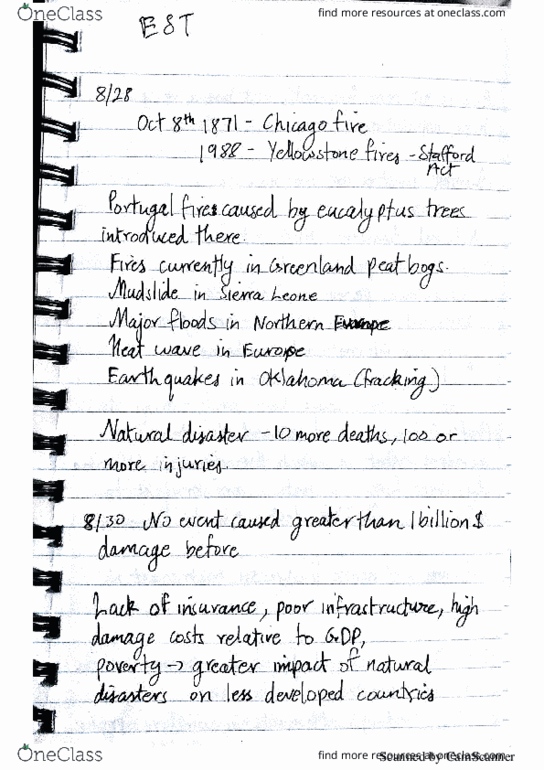 OneClass
find more resources at oneclass.com
EST
8/28
Oct 8th 1871 - Chicago fire
1988 - Yellowstone fires - Stafford
Act
Portugal fires caused by eucalyptus trees
introduced there.
Fires currently in Greenland peat bogs.
Mudslide in Sierra Leone
Major floods in Northern Europe
Heat wave in Europe
Earthquakes in Oklahoma (fracking)
Natural disaster - 10 more deaths, 100 or
more injuries.
8/30 No event caused greater than 1 billion $
damage before
Lack of insurance, poor infrastructure, high
damage costs relative to GDP,
poverty → greater impact of natural
disasters on less developed countries
OneClass
find more resources at oneclass.com
Scanned by CamScanner